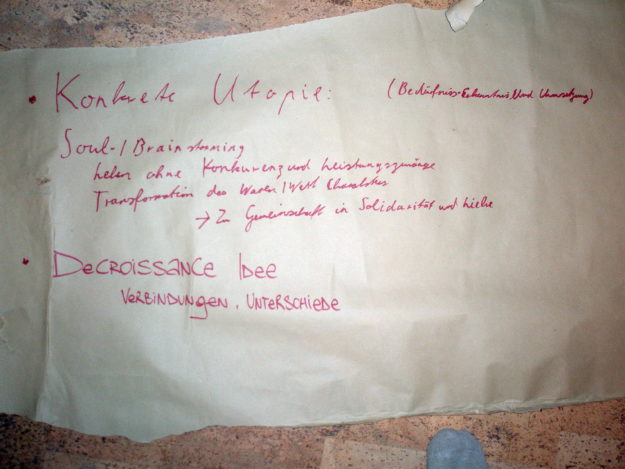 Konkrete Utopie: (Bedüfniss-Erkenntnis Und Umsetzung)
Soul-/Brainstorming
Leben ohne Konkurenz und Leistungszwänge
Transformation des Waren/Wert Charakters
→ Zu Gemeinschaft in Solidarität und Liebe
DeCROISSANCE IDEE
VERBINDUNGEN, UNTERSCHIEDE